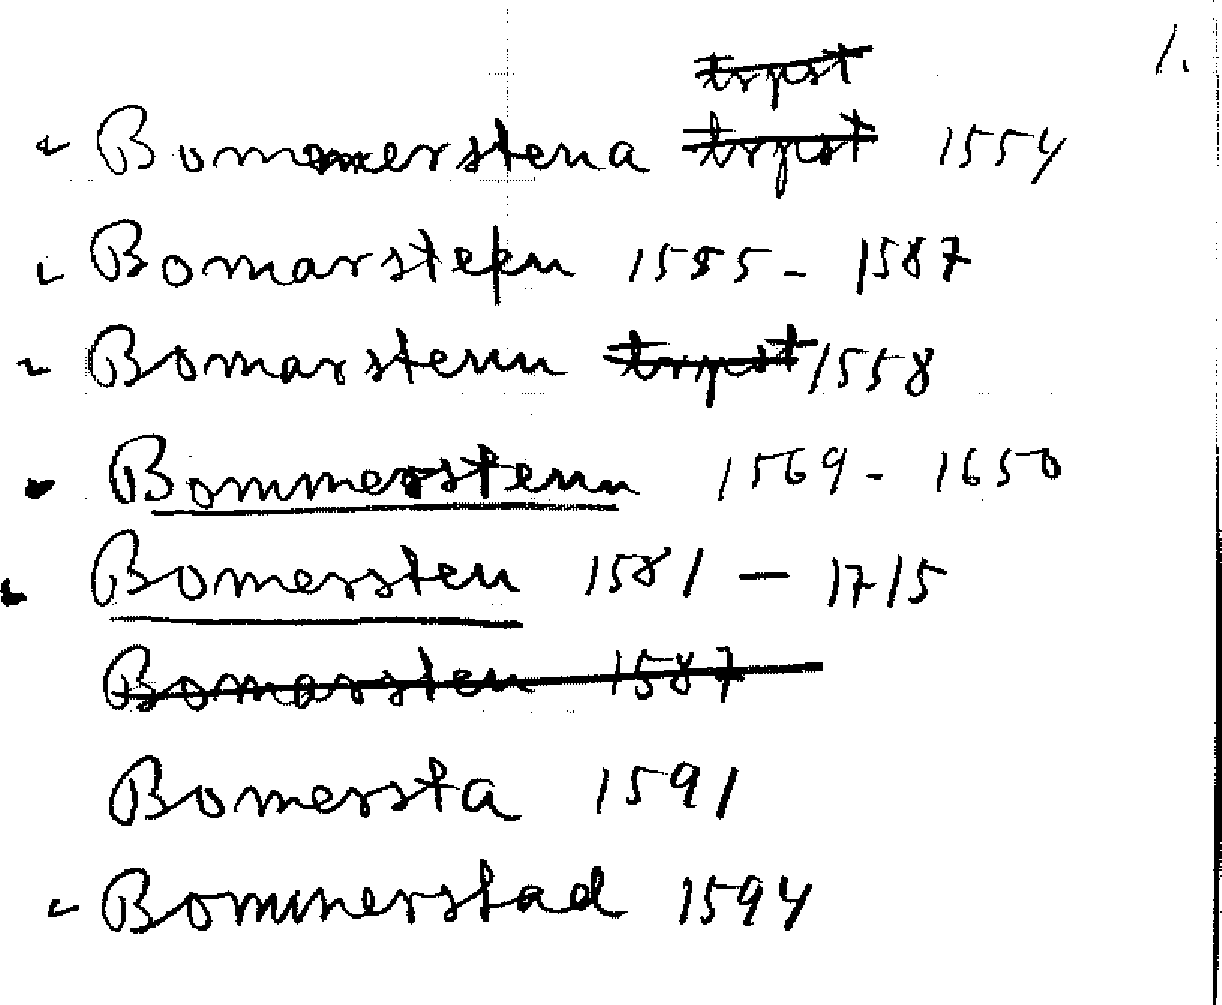 1.
Bomerstena 1554
Bomarsten 1555 - 1587
Bomarstenn 1558
Bommerstenn 1569 - 1650
Bomersten 1581 - 1715
Bomarsten 1587
Bomersta 1591
Bommerstad 1594